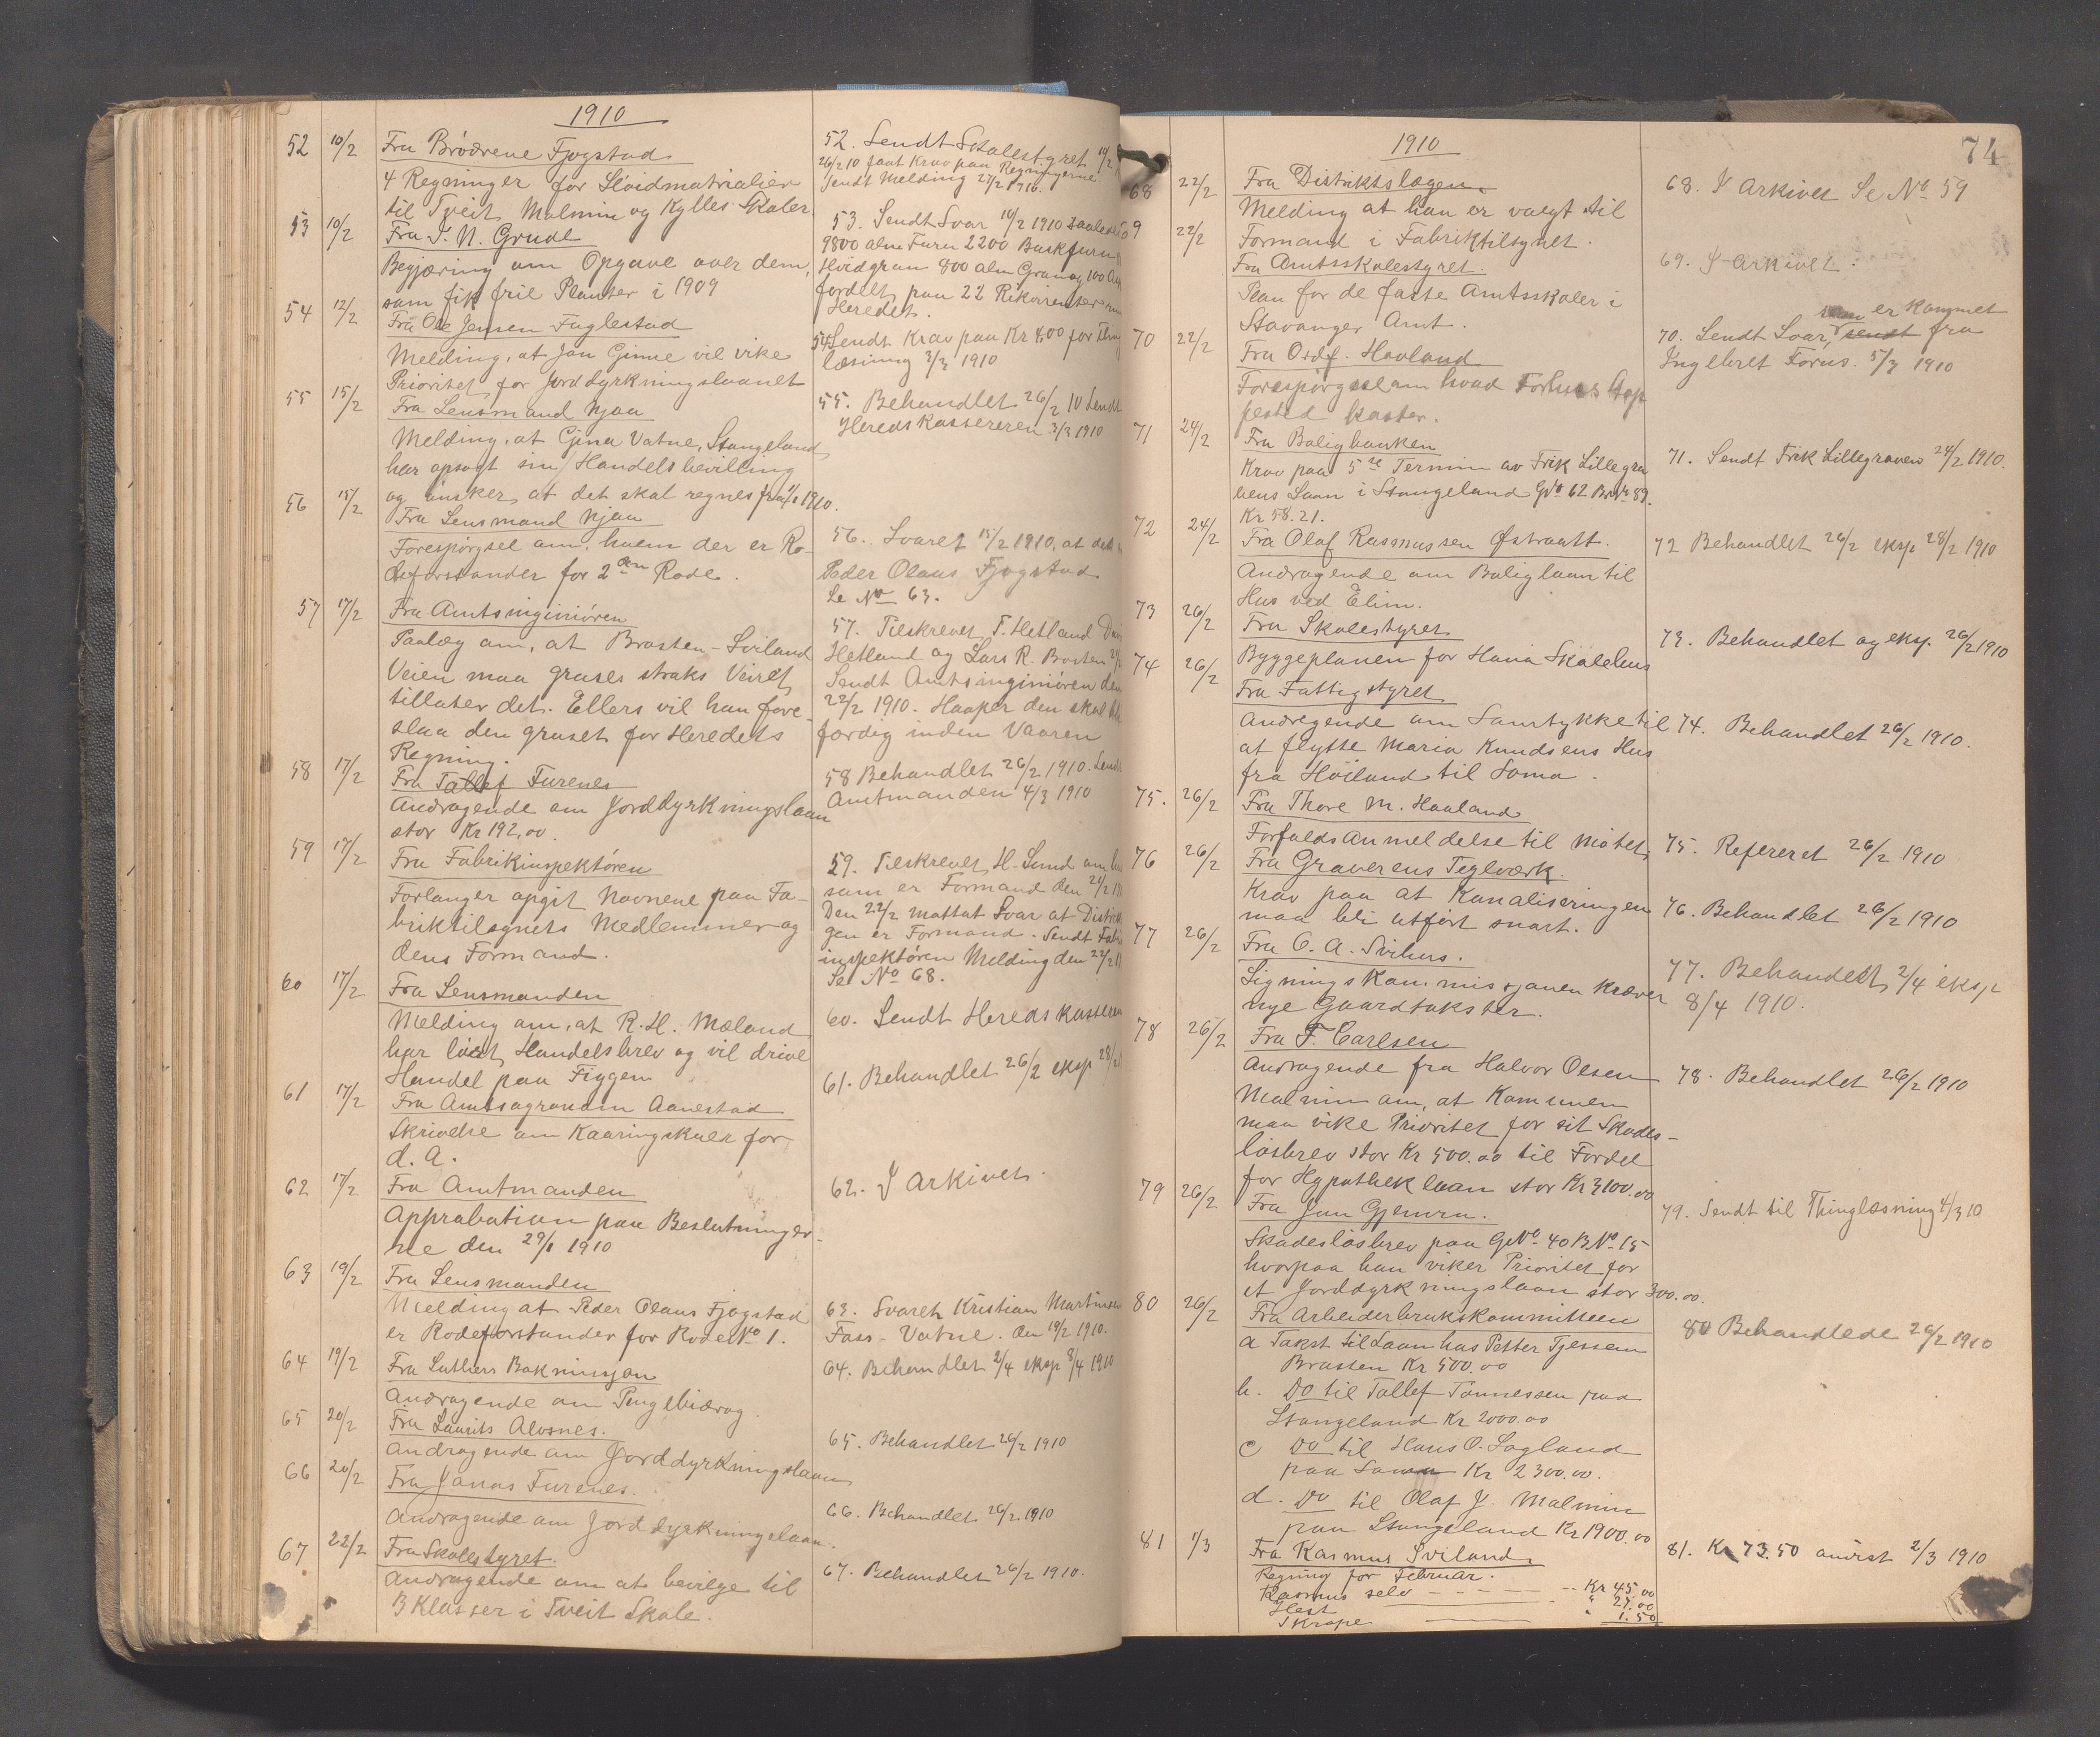 1910
52 10/2 Fra Brødrene Fjogstad
4 Regninger for Sløidmatrialier
til Tveit, Malmin og Kylles Skoler
53 10/2 Fra T. N. Grude
Begjæring om Opgave over dem,
som fik frie Planter i 1909
54 12/2 Fra Ole Jensen Foglestad
Melding, at Jon Gimre vil vike
Prioritet for Jorddyrkningslaanet
55 15/2 Fra Lensmand Njaa
Melding, at Gjina Vatne, Stangeland
har opsagt sin Handelsbevilling
og ønsker, at det skal regnes fra 1/1 1910.
56 15/2 Fra Lensmand Njaa
Forespørgsel om, hvem der er Ro-
deforstander for 2den Rode.
57 17/2 Fra Amtsingeniøren
Paalæg om, at Brosten-Sviland
Veien maa gruses straks Veiret
tillater det. Ellers vil han fore-
slaa den gruset for Heredets
Regning.
58 17/2 Fra Tallef Furenes
Andragende om Jorddyrkningslaan
stor Kr 192,00.
59 17/2 Fra Fabrikinspektøren
Forlanger opgit Navnene paa Fa-
briktilsynets Medlemmer og
dens Formand.
60 17/2 Fra Lensmanden
Melding om, at R. H. Mæland
har løst Handelsbrev og vil drive
Handel paa Figgen
61 17/2 Fra Amtsagronom Aanestad
Skrivelse om Kaaringskuer for
d. A.
62 17/2 Fra Amtmanden
Approbation paa Beslutninger-
ne den 29/1 1910
63 19/2 Fra Lensmanden
Melding at Peder Olaus Fjogstad
er Rodeforstander for Rode No 1.
64 19/2 Fra Luthers Bokmisjon
Andragende om Pengebidrag.
65 20/2 Fra Laurits Alvsnes.
Andragende om Jorddyrkningslaan
66 20/2 Fra Jonas Furenes.
Andragende om Jorddyrkningslaan.
67 22/2 Fra Skolestyret.
Andragende om at bevilge til
3 Klasser i Tveit Skole.
52. Sendt Skolestyret 10/2
26/2 10 faat Krav paa Regningerne.
Sendt Melding 27/2 1910.
53. Sendt Svar 10/2 1910 saaledes
9800 alm Furu 2200 Buskfuru
Hvidgran 800 alm Gran og 100
fordelt paa 22 Rekvirenter
Heredet.
54 Sendt Krav paa Kr 4,00 for Thing
læsning 3/3 1910
55. Behandlet 26/2 10 Sendt
Heredskassereren 3/3 1910
56. Svaret 15/2 1910, at det
Peder Olaus Fjogstad
Se No 63.
57. Tilskrevet T. Hetland
Hetland og Lars R. Brosten
Sendt Amtsingeniøren den
22/2 1910. Haaper den skal
færdig inden Vaaren
58 Behandlet 26/2 1910. Sendt
Amtmanden 4/3 1910
59. Tilskrevet H. Lund om
som er Formand den 21/2
Den 22/2 mottat Svar at
gen er Formand. Sendt
inspektøren Melding den 22/2
Se No 68.
60. Sendt Heredskasseren
61. Behandlet 26/2 eksp 28/2
62. I Arkivet.
63. Svaret Kristian Martinsen
Foss-Vatne. den 19/2 1910.
64. Behandlet 2/4 eksp 8/4 1910
65. Behandlet 26/2 1910
66. Behandlet 26/2 1910
67. Behandlet 26/2 1910.
74
1910
68 22/2 Fra Distriktslægen.
Melding at han er valgt til
Formand i Fabriktilsynet.
69 22/2 Fra Amtsskolestyret.
Plan for de faste Amtsskoler i
Stavanger Amt.
70 22/2 Fra Ordf. Hovland
Forespørgsel om hvad Forhus Stop
pested koster.
71 24/2 Fra Boligbanken
Krav paa 5te Termin av Frik Lillegra
vens Laan i Stangeland Gno 62 Brno 89.
Kr 58.21.
72 24/2 Fra Olaf Rasmussen Østraatt.
Andragende om Boliglaan til
Hus ved Elim.
73 26/2 Fra Skolestyret
Byggeplanen for Hana Skolehus
74 26/2 Fra Fattigstyret
Andragende om Samtykke til
at flytte Maria Knudsens Hus
fra Høiland til Soma.
75. 26/2 Fra Thore M. Haaland
Forfaldsanmeldelse til Møtet.
76 26/2 Fra Graverens Teglværk.
Krav paa at Kanaliseringen
maa bli utført snart.
77 26/2 Fra O. A. Svihus.
Ligningskommissjonen kræver
nye Gaardtakster.
78 26/2 Fra F. Carlsen
Andragende fra Halvor Olsen
Malmin om, at Kommunen
maa vike Prioritet for sit Skades-
løsbrev stor Kr 500.00 til Fordel
for Hypotheklaan stor Kr 3100.00
79 26/2 Fra Jon Gjemre.
Skadesløsbrev paa GNo 40 BNo 15
hvorpaa han viker Prioritet for
et Jorddyrkningslaan stor 300.00.
80 26/2 Fra Arbeiderbrukskommitteen
a Takst til Laan hos Petter Tjessem
Brusten Kr 500.00
b. Do til Tallef Tønnessen paa
Stangeland Kr 2000.00
c Do til Hans O. Sagland
paa Soma Kr 2300.00.
d. Do til Olaf J. Malmin
paa Stangeland Kr 1900.00
81 1/3 Fra Rasmus Sviland.
Regning for Februar.
Rasmus selv Kr 45.00
Hest " 27.00
Skrape " 1.50
68. I Arkivet Se No 59
69. I Arkivet.
er kommet
70. Sendt Svar, sendt fra
Ingebret Forus. 5/3 1910
71. Sendt Frik Lillegraven 24/2 1910.
72 Behandlet 26/2 eksp 28/2 1910
73. Behandlet og eksp. 26/2 1910
74. Behandlet 26/2 1910.
75. Refereret 26/2 1910
76. Behandlet 26/2 1910
77. Behandlet 2/4 eksp
8/4 1910.
78. Behandlet 26/2 1910
79. Sendt til Thinglæsning 4/3 10
80 Behandlede 26/2 1910
81. Kr 73.50 anvist 2/3 1910